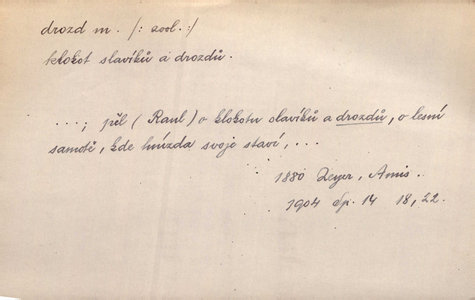 drozd m. /: zool. :/
klokot slavíků a drozdů.
...; pěl (Raul) o klokotu slavíků a drozdů, o lesní
samotě, kde hnízda svoje staví, ...
1880 Zeyer, Amis.
1904 Sp. 14 18, 22.